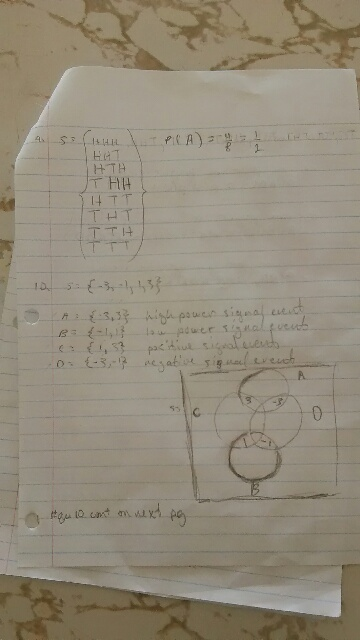 9. S = { HHH P(A) = 4/8 = 1/2
HHT
HTH
THH
HTT
THT
TTH
TTT }
10. S = {-3, -1, 1, 3}
A = {-3, 3} high power signal event
B = {-1, 1} low power signal event
C = {1, 3} positive signal event
D = {-3, -1} negative signal event
A
3 -3
S= C D
1 -1
B
cont on next pg